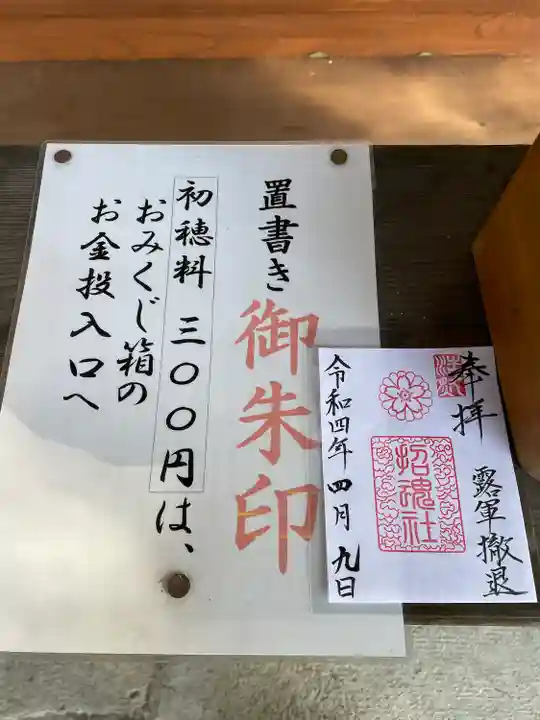 置書き
御朱印
初穂料 三〇〇円は、
おみくじ箱の
お金投入口へ
奉拝
露軍撤退
招魂社
令和四年 四月 九日